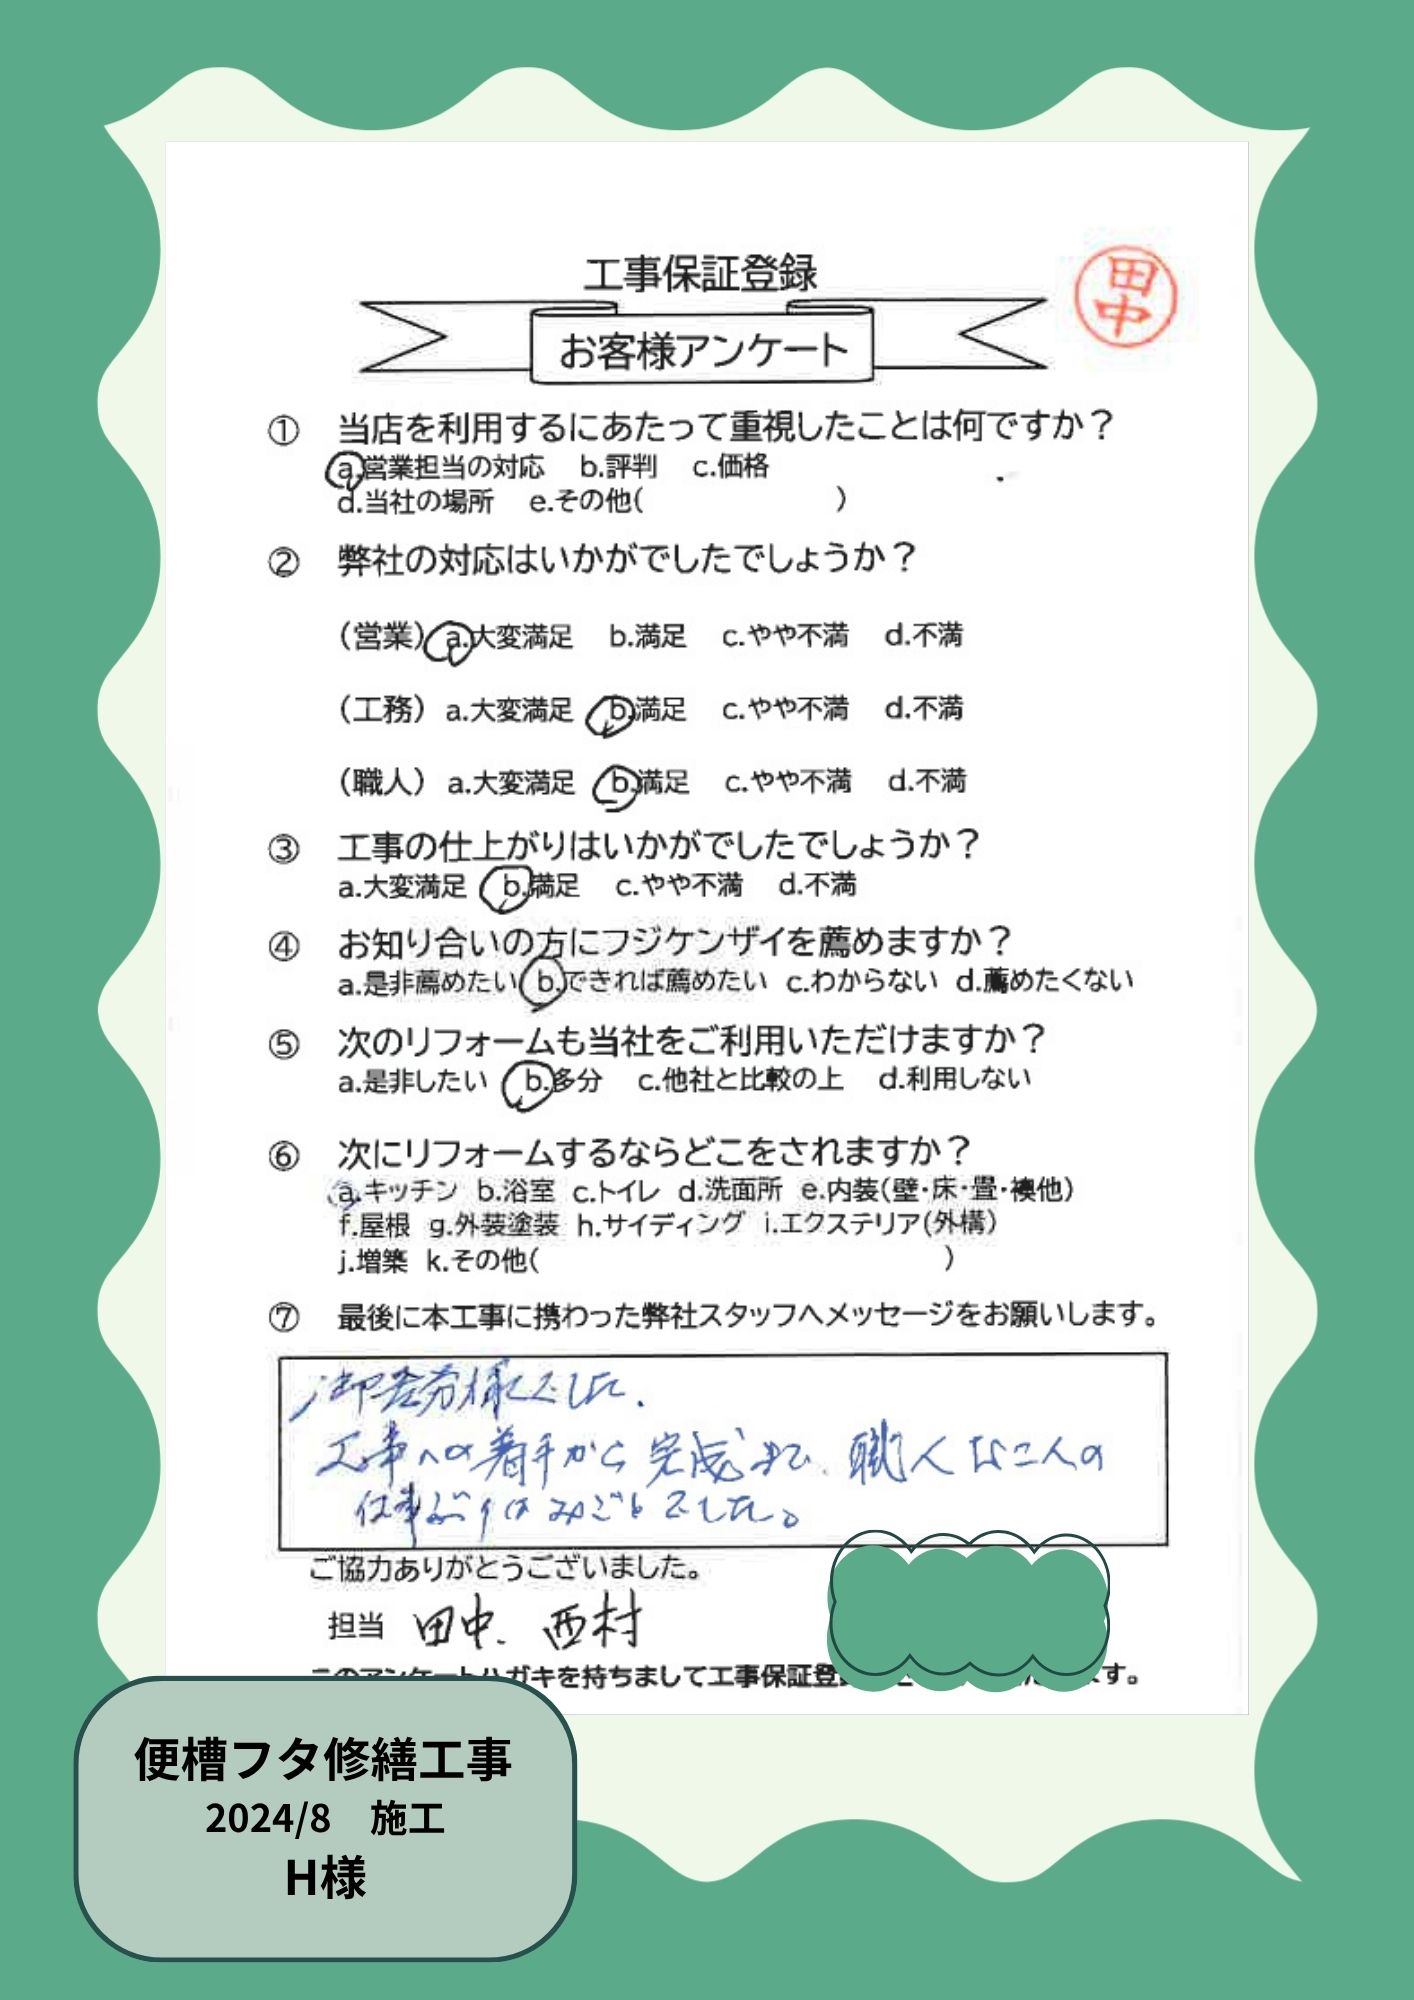 工事保証登録
田中
お客様アンケート
① 当店を利用するにあたって重視したことは何ですか？
a.営業担当の対応 b.評判 c.価格
d.当社の場所 e.その他( )
② 弊社の対応はいかがでしたでしょうか？
（営業）a.大変満足 b.満足 c.やや不満 d.不満
（工務）a.大変満足 b.満足 c.やや不満 d.不満
（職人）a.大変満足 b.満足 c.やや不満 d.不満
③ 工事の仕上がりはいかがでしたでしょうか？
a.大変満足 b.満足 c.やや不満 d.不満
④ お知り合いの方にフジケンザイを薦めますか？
a.是非薦めたい b.できれば薦めたい c.わからない d.薦めたくない
⑤ 次のリフォームも当社をご利用いただけますか？
a.是非したい b.多分 c.他社と比較の上 d.利用しない
⑥ 次にリフォームするならどこをされますか？
a.キッチン b.浴室 c.トイレ d.洗面所 e.内装(壁・床・畳・襖他)
f.屋根 g.外装塗装 h.サイディング i.エクステリア(外構)
j.増築 k.その他( )
⑦ 最後に本工事に携わった弊社スタッフへメッセージをお願いします。
御苦労様でした.
工事への着手から完成まで、職人お二人の
仕事ぶりはみごとでした。
ご協力ありがとうございました。
担当 田中. 西村
このアンケートハガキを持ちまして工事保証登 ます。
便槽フタ修繕工事
2024/8 施工
H様